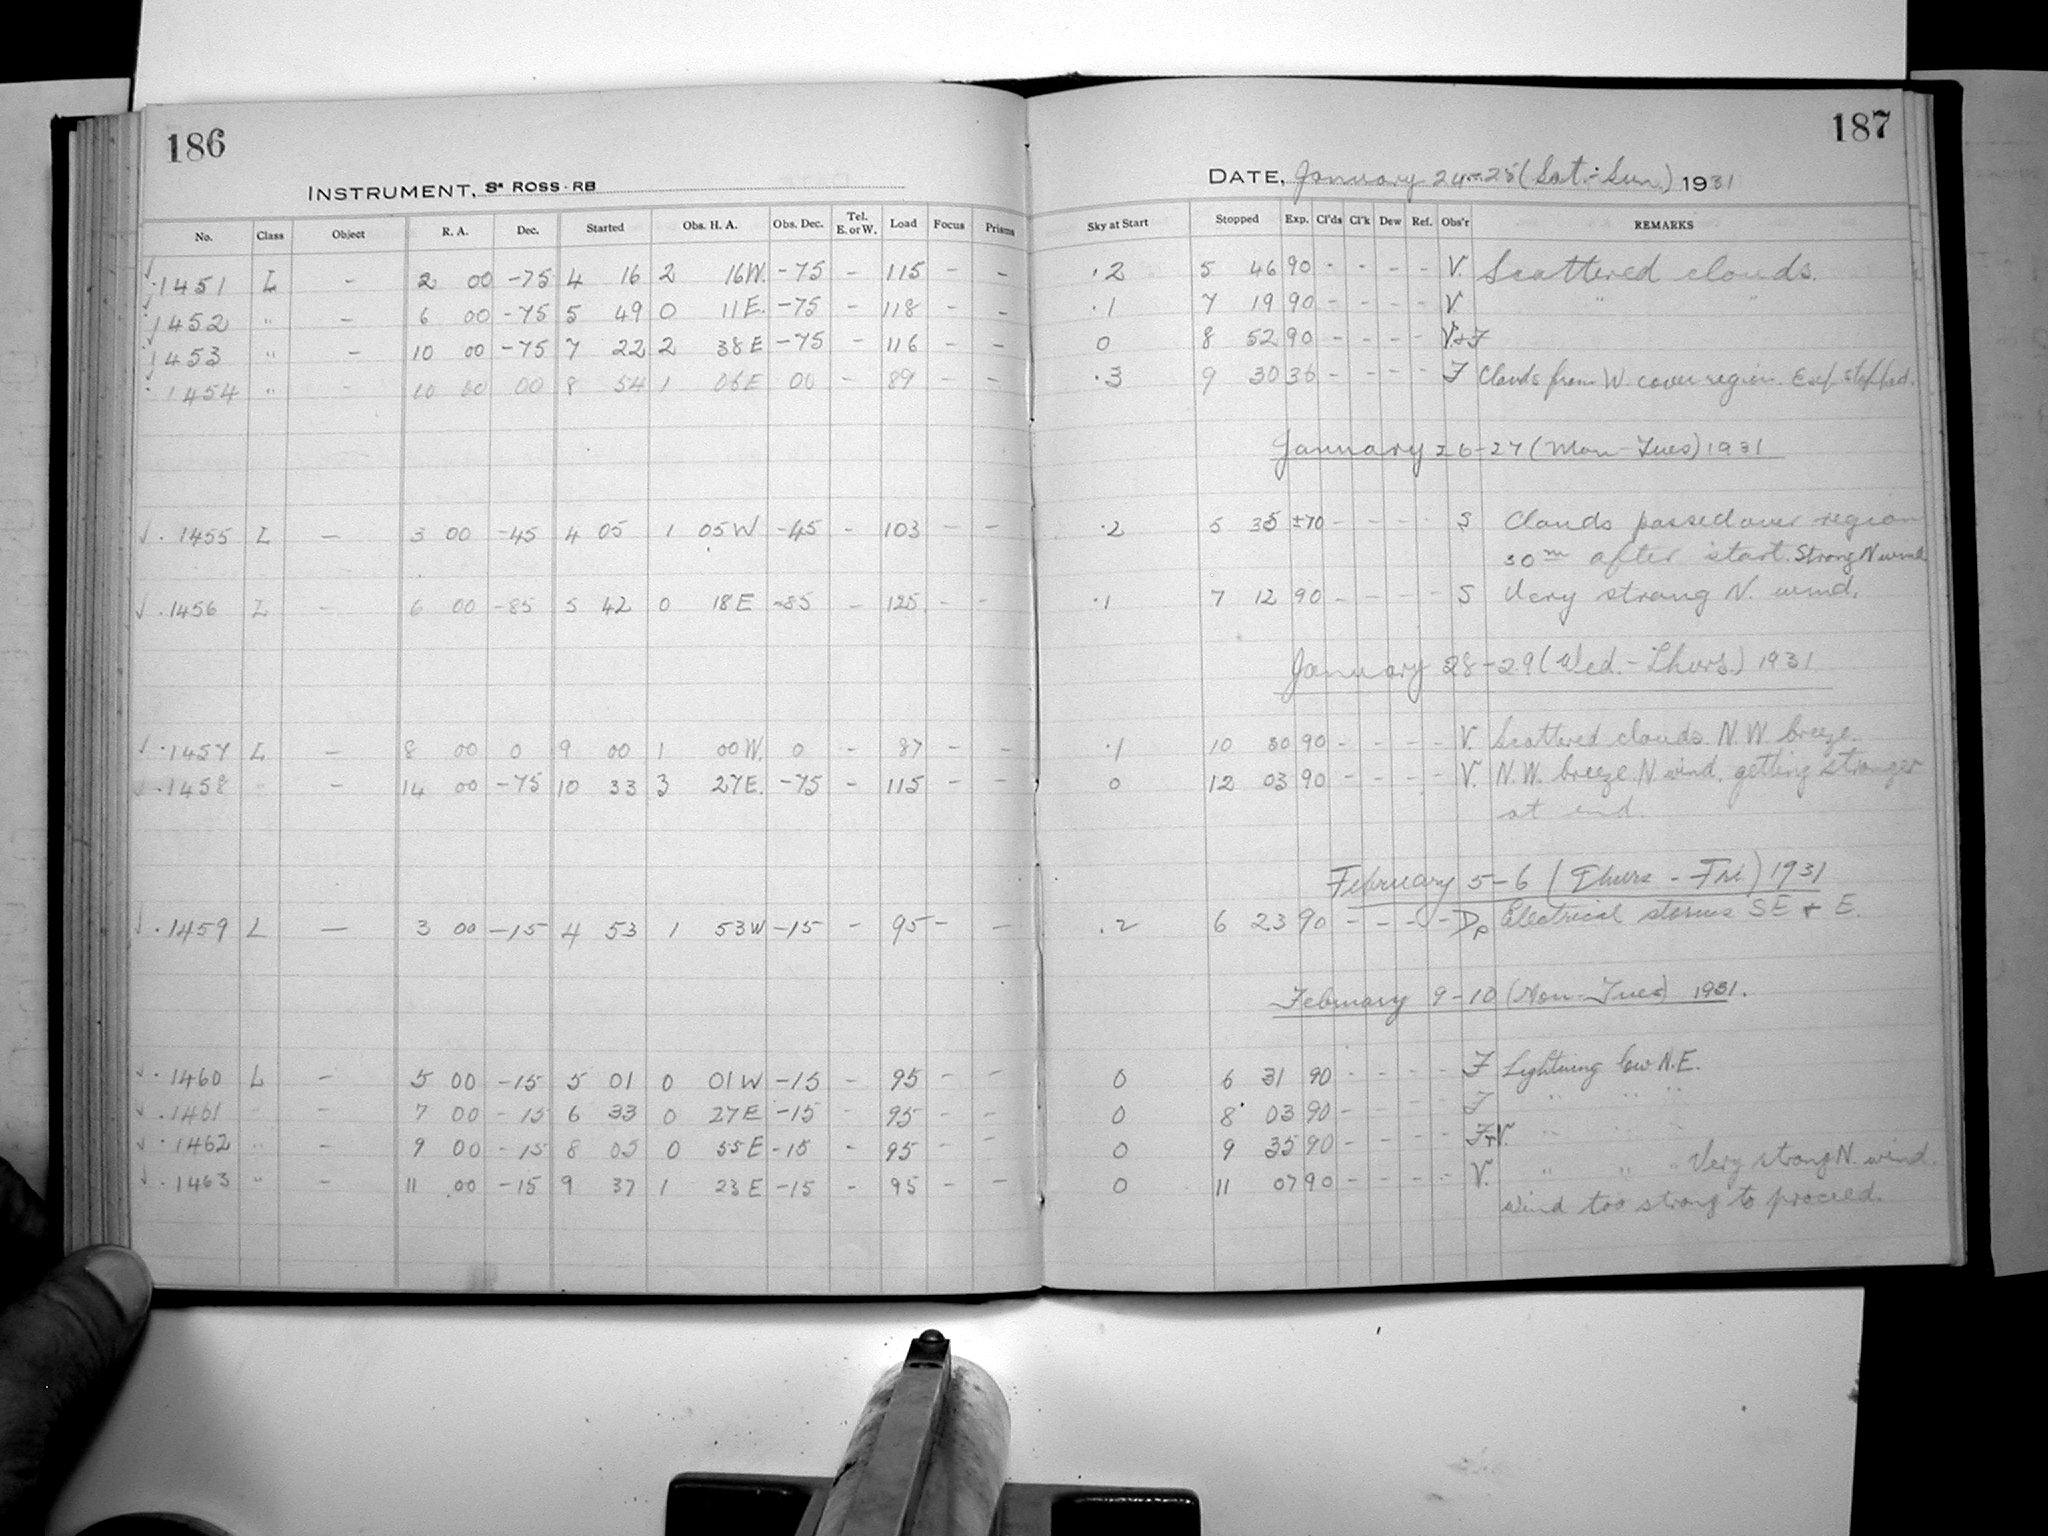 186
INSTRUMENT, 8" ROSS-RB
No. Class Object R. A. Dec. Started Obs. H. A. Obs. Dec. Tel. E. or W. Load Focus Prisms
1451 L - 2 00 -75 4 16 2 16W. -75 - 115 - -
1452 " - 6 00 -75 5 49 0 11E. -75 - 118 - -
1453 " - 10 00 -75 7 22 2 38E -75 - 116 - -
1454 " - 10 00 00 8 54 1 06E 00 - 89 - -
1455 L - 3 00 -45 4 05 1 05W -45 - 103 - -
1456 L - 6 00 -85 5 42 0 18E -85 - 125 - -
1457 L - 8 00 0 9 00 1 00W. 0 - 87 - -
1458 " - 14 00 -75 10 33 3 27E. -75 - 115 - -
1459 L - 3 00 -15 4 53 1 53W -15 - 95 - -
1460 L - 5 00 -15 5 01 0 01W -15 - 95 - -
1461 " - 7 00 -15 6 33 0 27E -15 - 95 - -
1462 " - 9 00 -15 8 05 0 55E -15 - 95 - -
1463 " - 11 00 -15 9 37 1 23E -15 - 95 - -
187
DATE, January 24-25 (Sat.-Sun.) 1931
Sky at Start Stopped Exp. Cl'ds Cl'k Dew Ref. Obs'r REMARKS
.2 5 46 90 - - - - V. Scattered clouds.
.1 7 19 90 - - - - V. " "
0 8 52 90 - - - - V.+F
.3 9 30 36 - - - - F Clouds from W. cover region. Exp. stopped.
January 26-27 (Mon-Tues) 1931
.2 5 35 ±70 - - - - S Clouds passed over region
30m after start. Strong N wind
.1 7 12 90 - - - - S Very strong N. wind.
January 28-29 (Wed.-Thurs.) 1931
.1 10 30 90 - - - - V. Scattered clouds. N.W. breeze.
0 12 03 90 - - - - V. N.W. breeze. N wind, getting stronger
at end.
February 5-6 (Thurs - Fri) 1931
.2 6 23 90 - - - - Dp Electrical storms SE + E.
February 9-10 (Mon-Tues) 1931.
0 6 31 90 - - - - F Lightning low N.E.
0 8 03 90 - - - - F " " "
0 9 35 90 - - - - F+V. " " "
0 11 07 90 - - - - V. " " " Very strong N. wind.
Wind too strong to proceed.